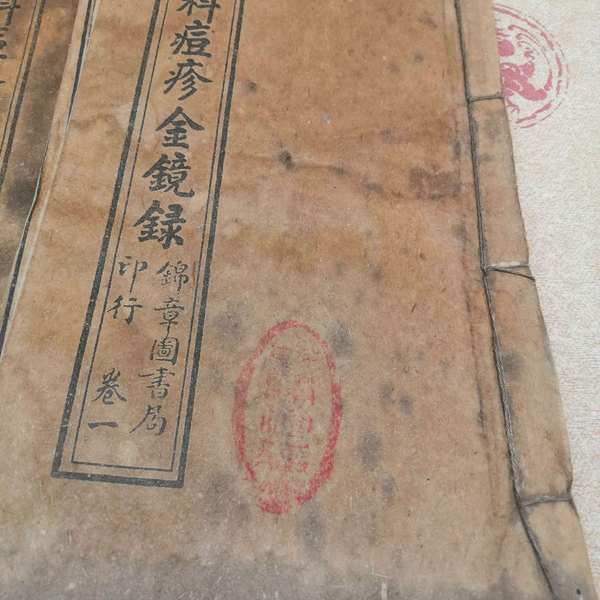 科痘疹金鏡録
錦章圖書局
印行
卷一